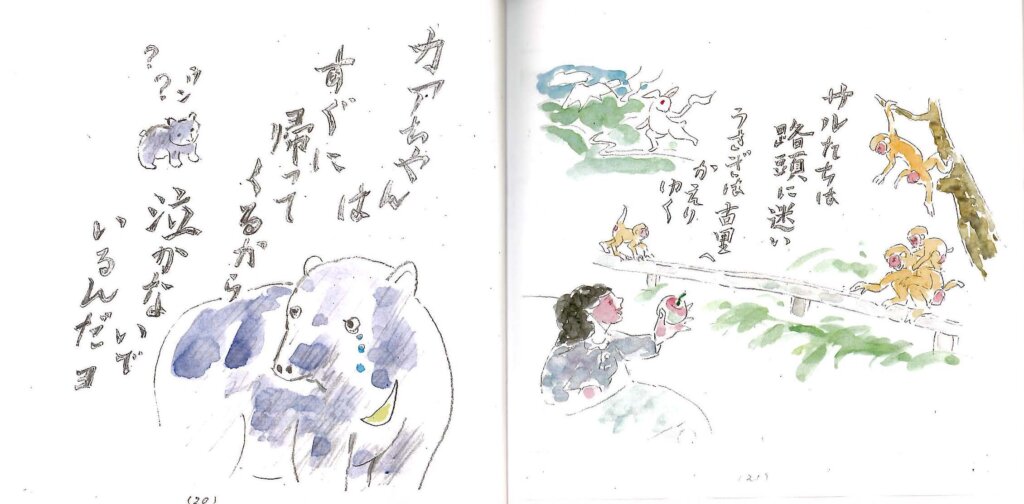 カアちゃんは
すぐに
帰って
くるから
泣かないで
いるんだヨ
ウン
??
(20)
サルたちは
路頭に迷い
うさぎは古里へ
かえり
ゆく
(21)